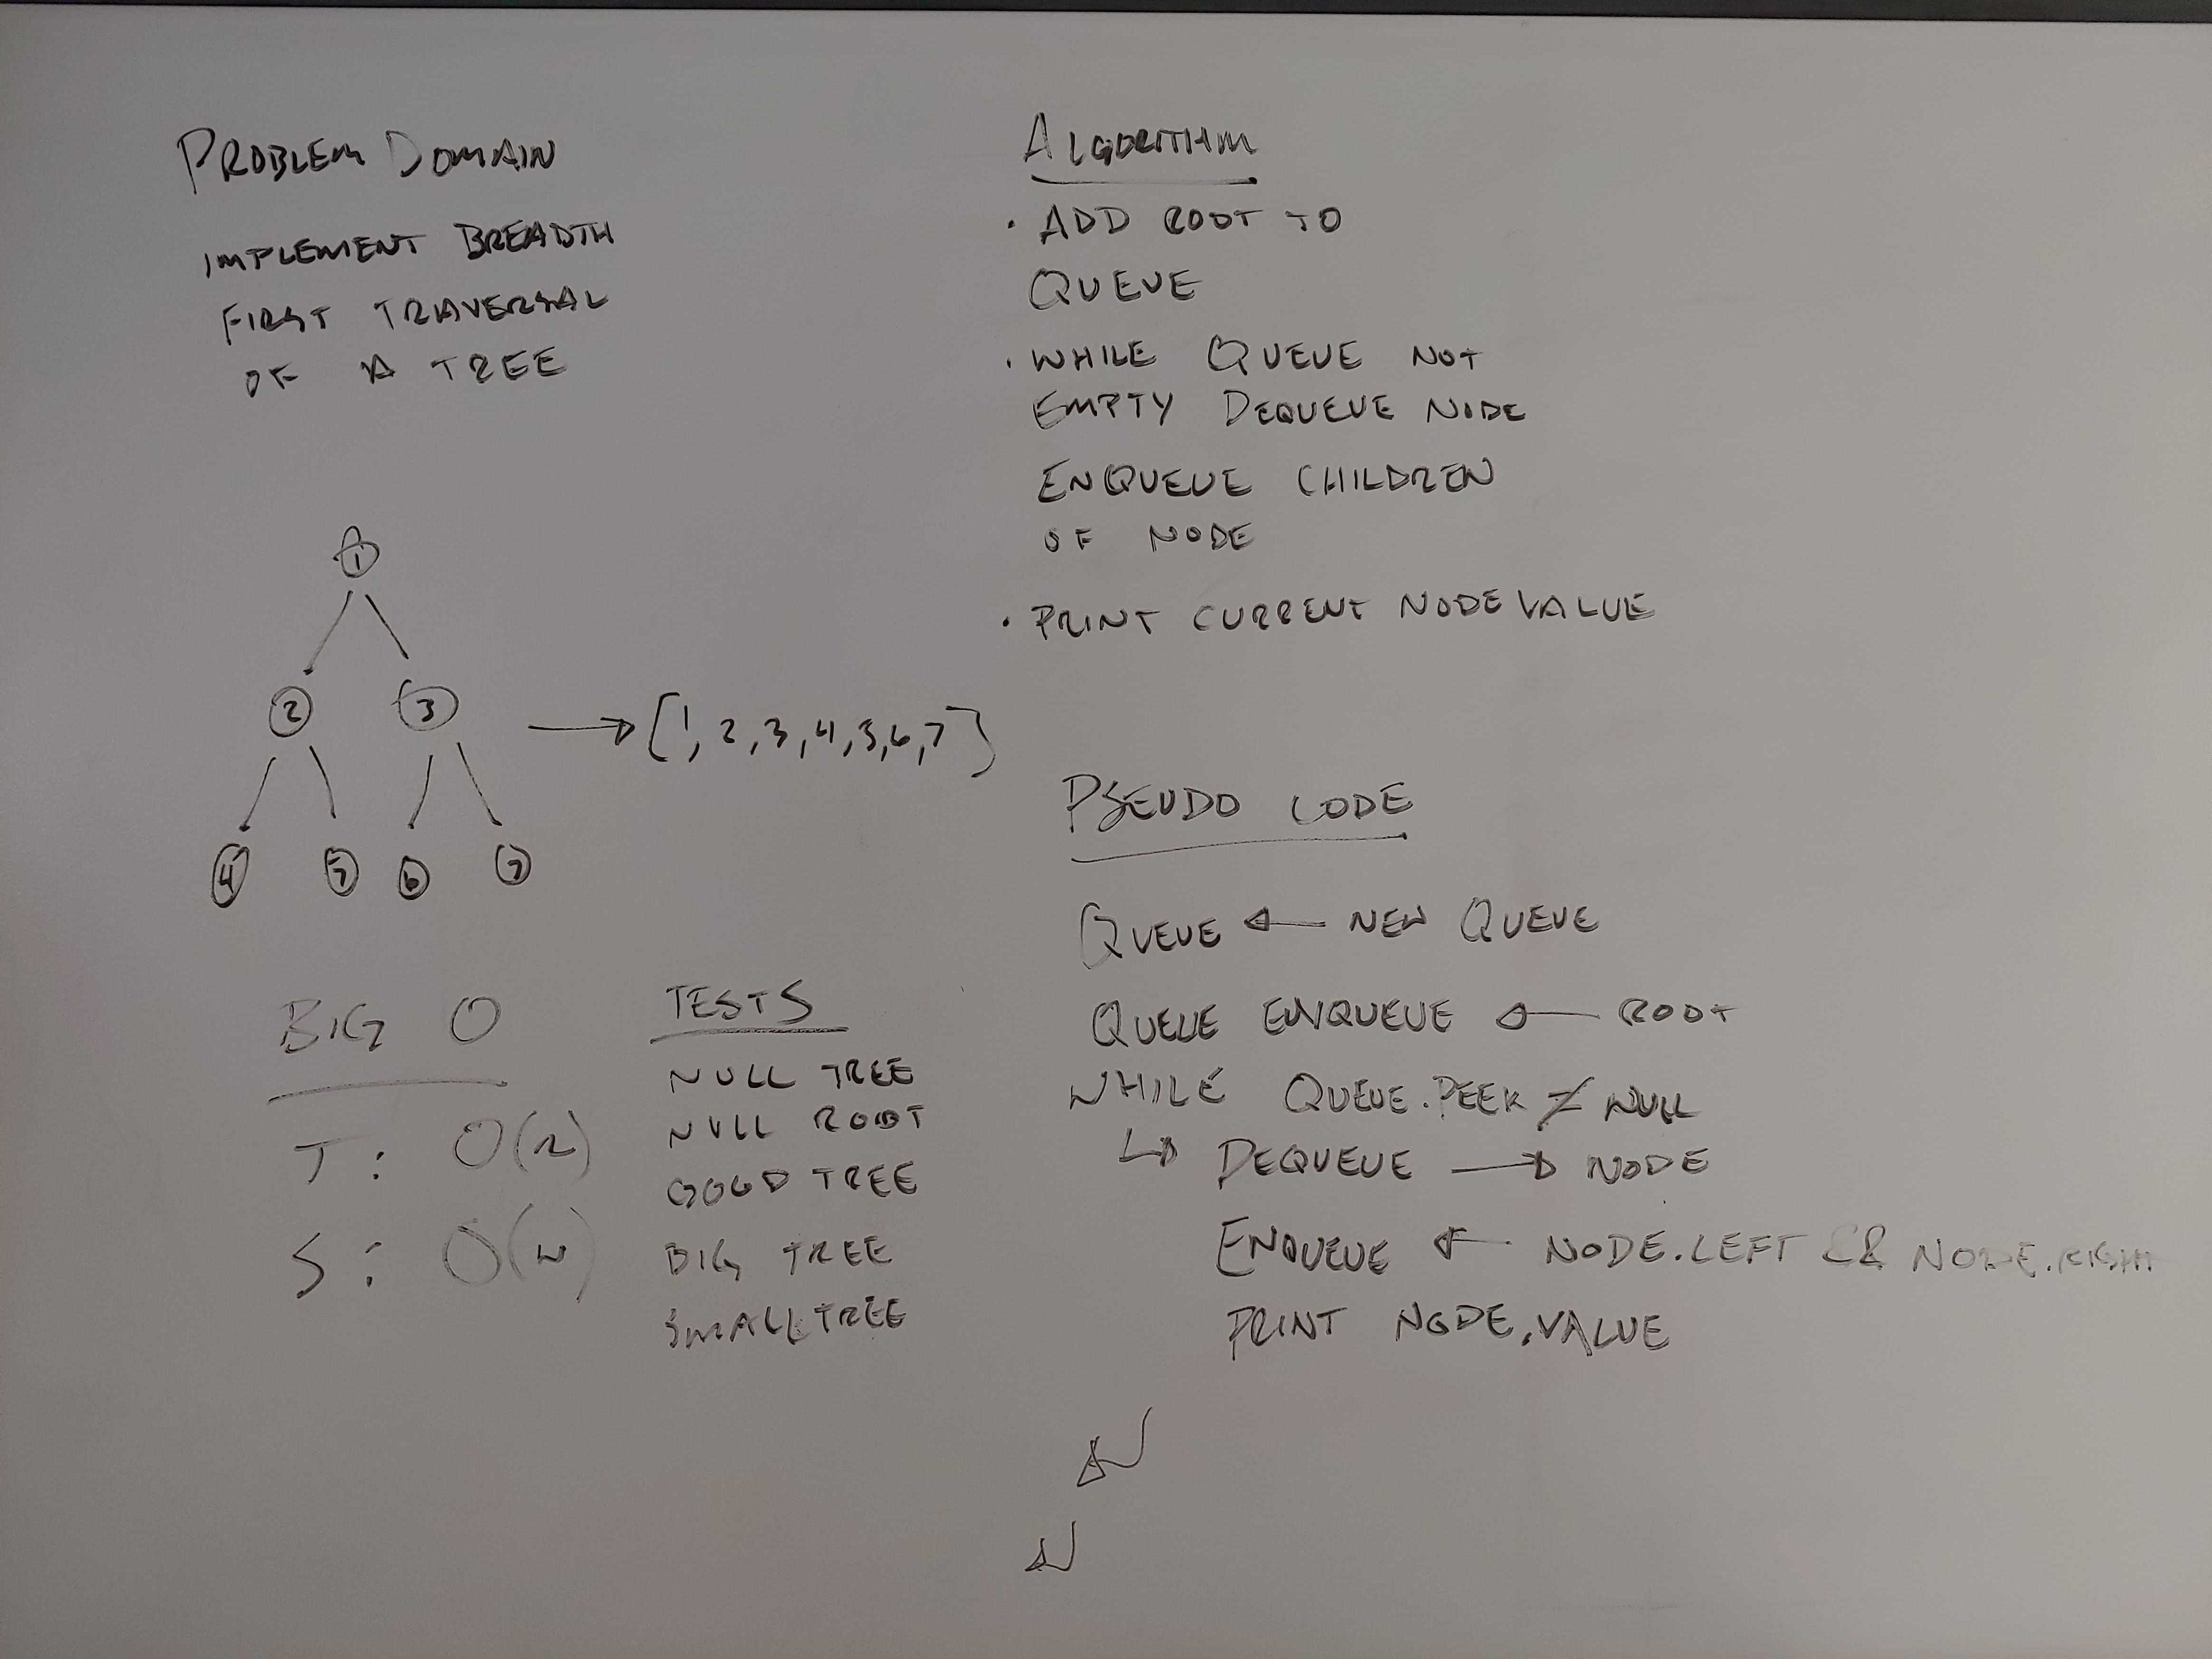 PROBLEM DOMAIN
IMPLEMENT BREADTH
FIRST TRAVERSAL
OF A TREE
1
2 3
[1, 2, 3, 4, 5, 6, 7]
4 5 6 7
BIG O
T: O(n)
S: O(w)
TESTS
NULL TREE
NULL ROOT
GOOD TREE
BIG TREE
SMALL TREE
ALGORITHM
· ADD ROOT TO
QUEUE
· WHILE QUEUE NOT
EMPTY DEQUEUE NODE
ENQUEUE CHILDREN
OF NODE
· PRINT CURRENT NODE VALUE
PSEUDO CODE
QUEUE ← NEW QUEUE
QUEUE ENQUEUE ← ROOT
WHILE QUEUE.PEEK ≠ NULL
↳ DEQUEUE → NODE
ENQUEUE ← NODE.LEFT && NODE.RIGHT
PRINT NODE.VALUE